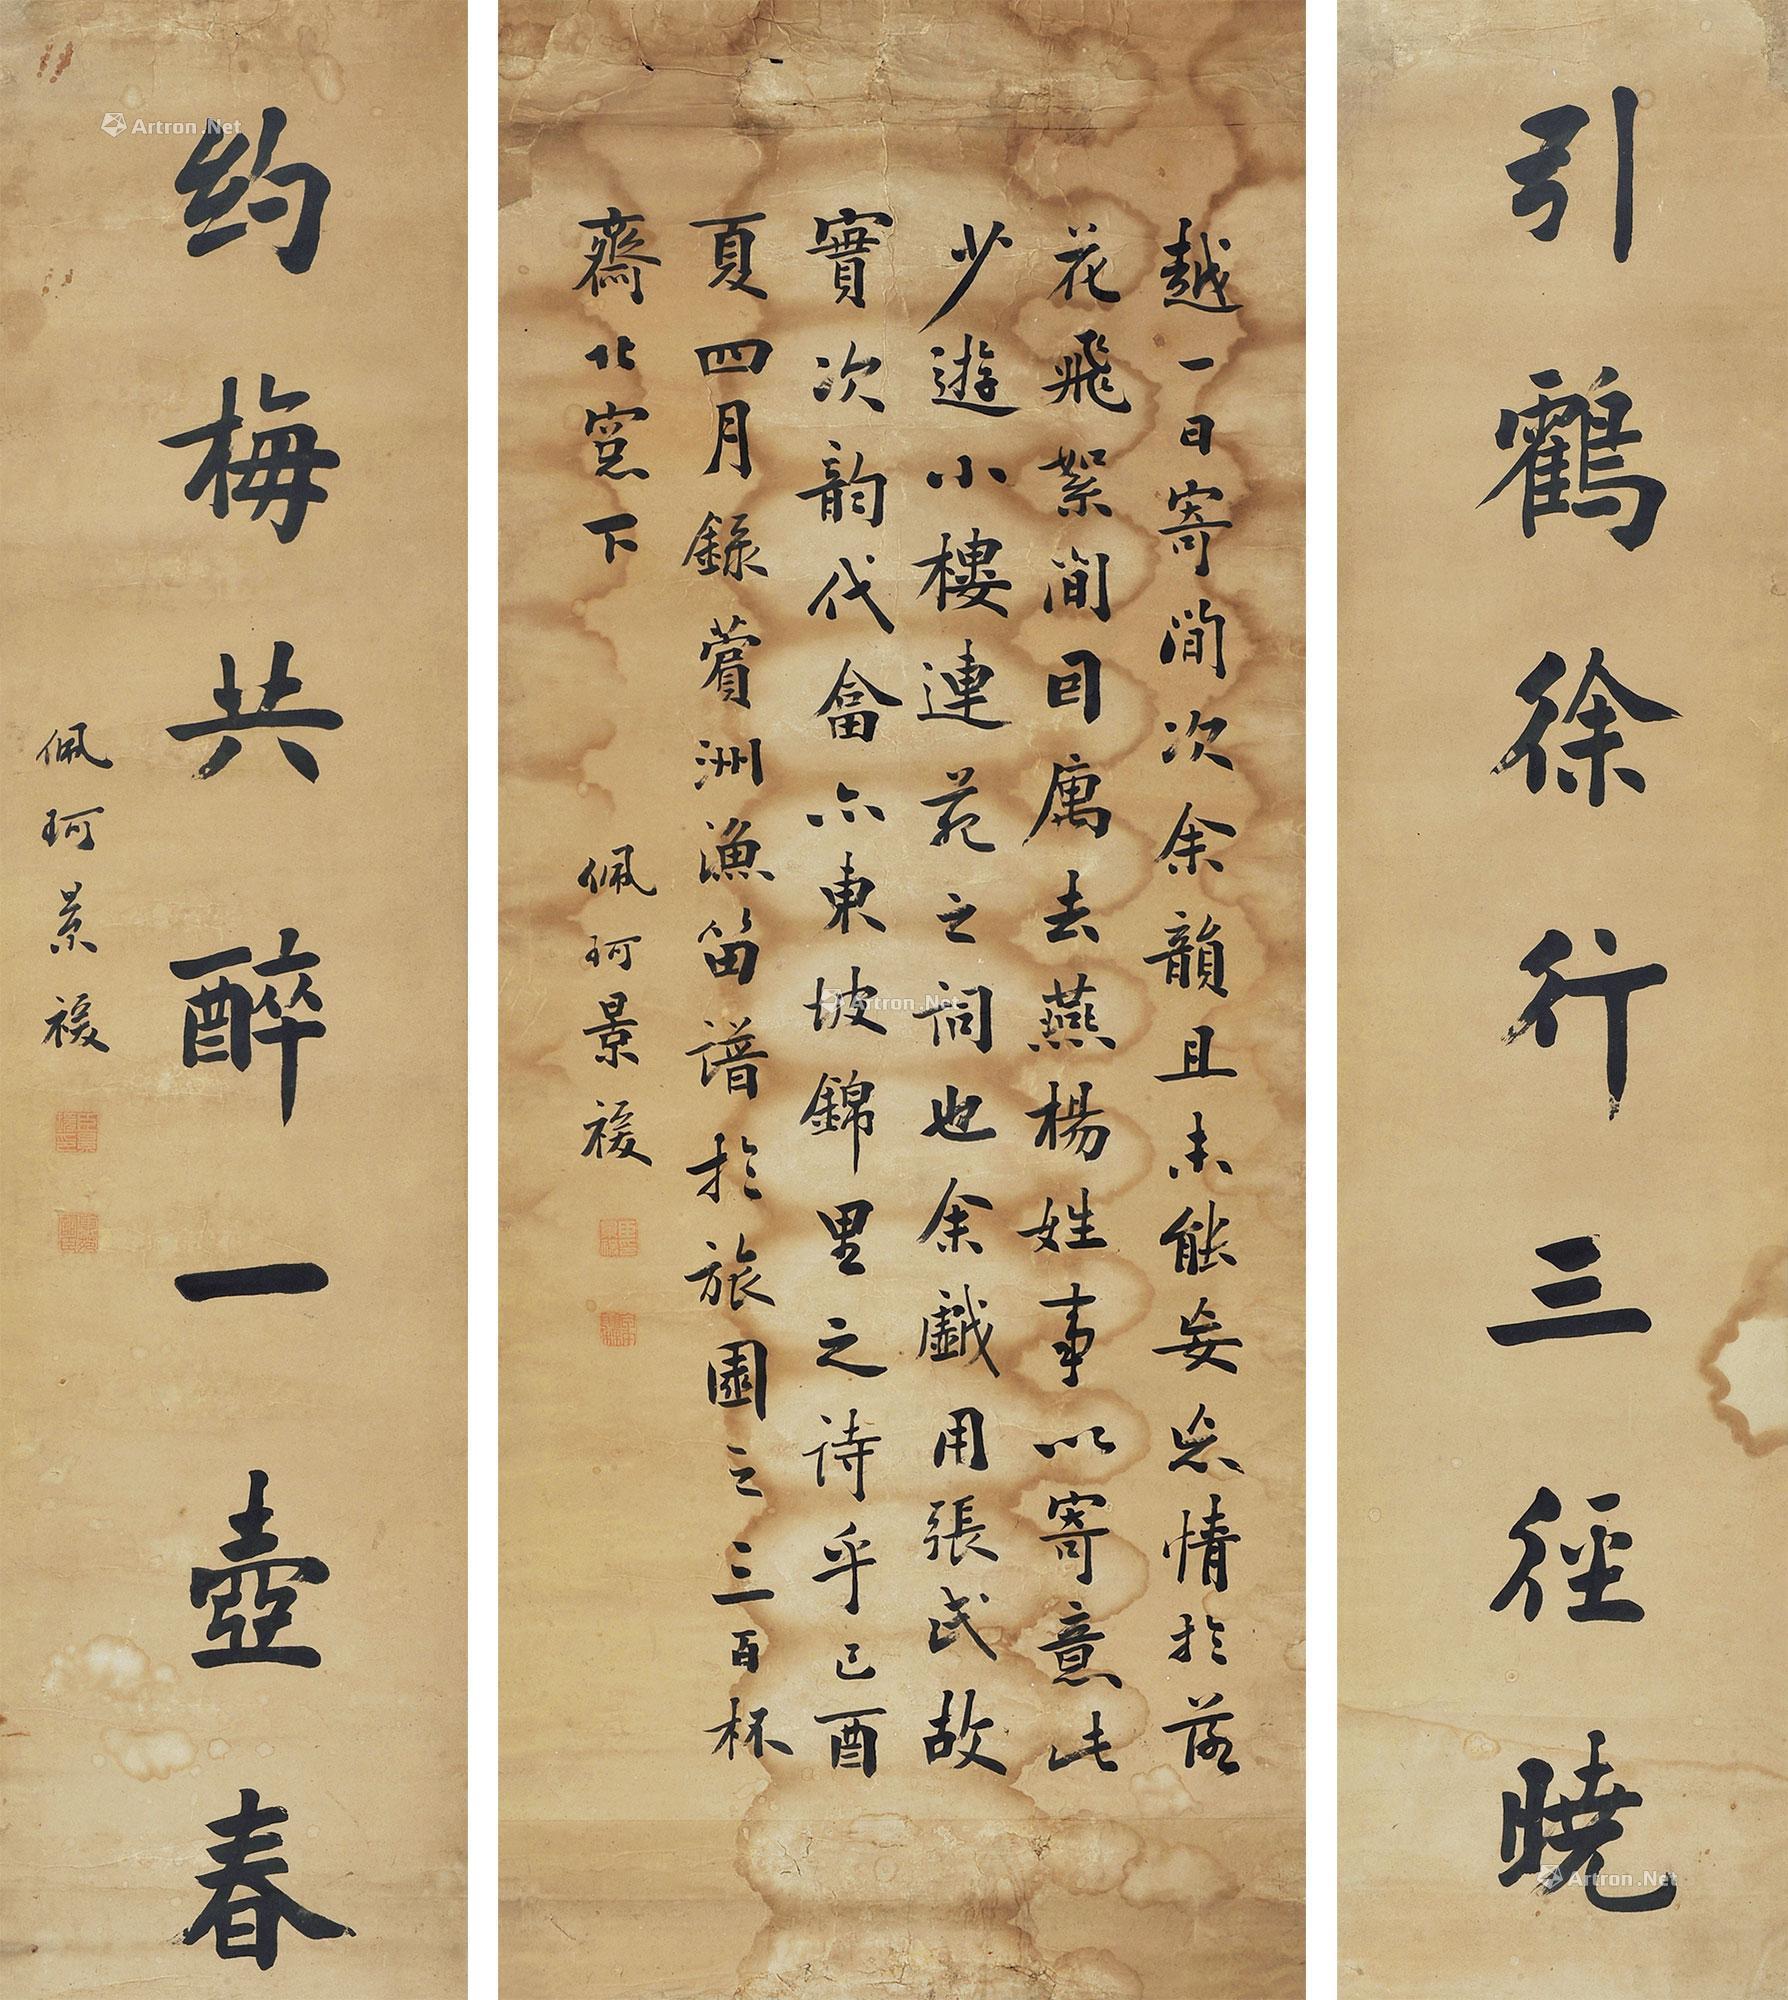 引鶴徐行三徑曉
越一日寄閒次余韻且未能妄忘情於落
花飛絮間因寓去燕楊姓事以寄意此
少游小樓連苑之詞也余戯用張氏故
實次韵代畲亦東坡錦里之诗乎己酉
夏四月錄薲洲漁笛譜於旅園之三百杯
齋北窓下
佩珂景禐
约梅共醉一壺春
佩珂景禐
Artron.Net
Artron.Net
Artron.Net